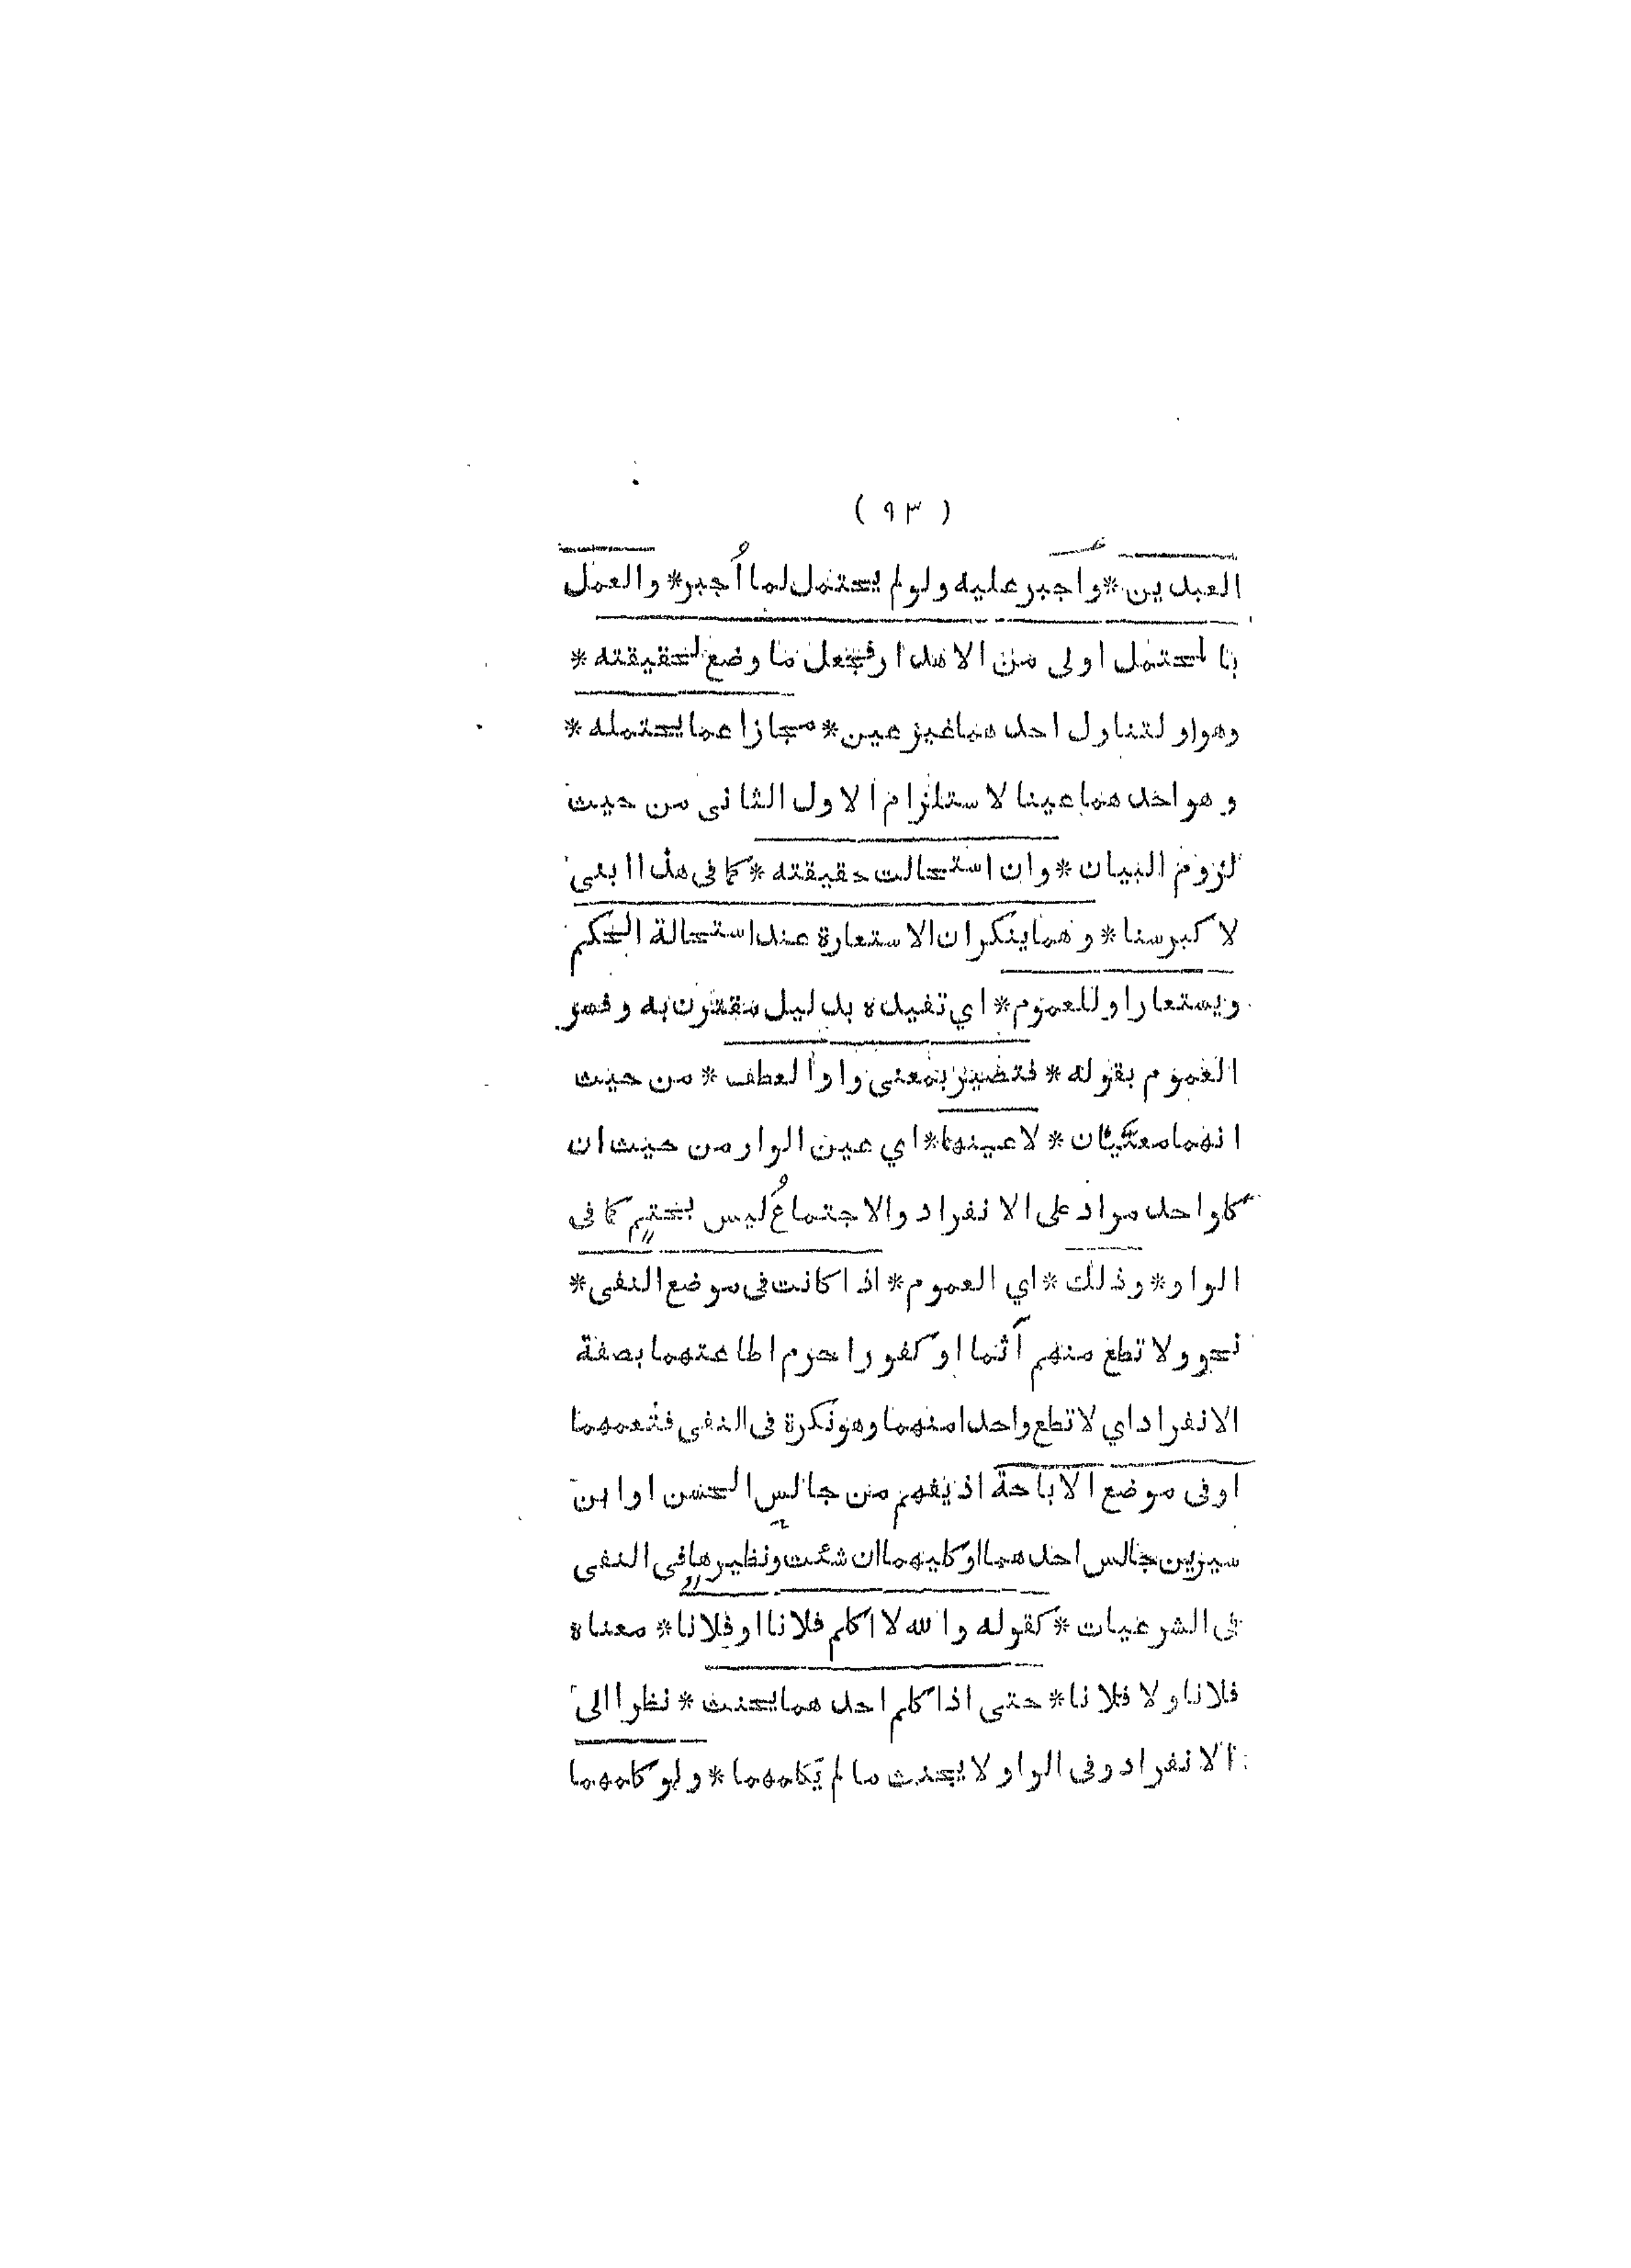 ( ٩٣ )
العبدين * واجبر عليه ولو لم يحتمل لما أُجبر * والعمل
بالمحتمل اولى من الاهدار فجعل ما وضع لحقيقته *
وهواو لتناول احدهما غير عين * مجازا عما يحتمله *
وهو احدهما عينا لاستلزام الاول الثانى من حيث
لزوم البيان * وان استحالت حقيقته * كما فى هذا ابنى
لاكبر سنا * وهما ينكران الاستعارة عند استحالة الحكم
ويستعار او للعموم * اي تفيده بدليل مقترن به وفسر
العموم بقوله * فتصير بمعنى واو العطف * من حيث
انهما معنيان * لا عينها * اي عين الواو من حيث ان
كلواحد مراد على الانفراد والاجتماعُ ليس بحتم كما فى
الواو * وذلك * اي العموم * اذا كانت فى موضع النفى *
نحو ولا تطع منهم آثما او كفورا حرم اطاعتهما بصفة
الانفراد اي لا تطع واحدا منهما وهو نكرة فى النفى فتعمهما
اوفى موضع الاباحة اذ يفهم من جالس الحسن او ابن
سيرين جالس احدهما او كليهما ان شئت ونظيرها فى النفى
فى الشرعيات * كقوله والله لا اكلم فلانا او فلانا * معناه
فلانا ولا فلانا * حتى اذا كلم احدهما يحنث * نظرا الى
الانفراد وفى الواو لا يحنث ما لم يكلمهما * ولو كلمهما